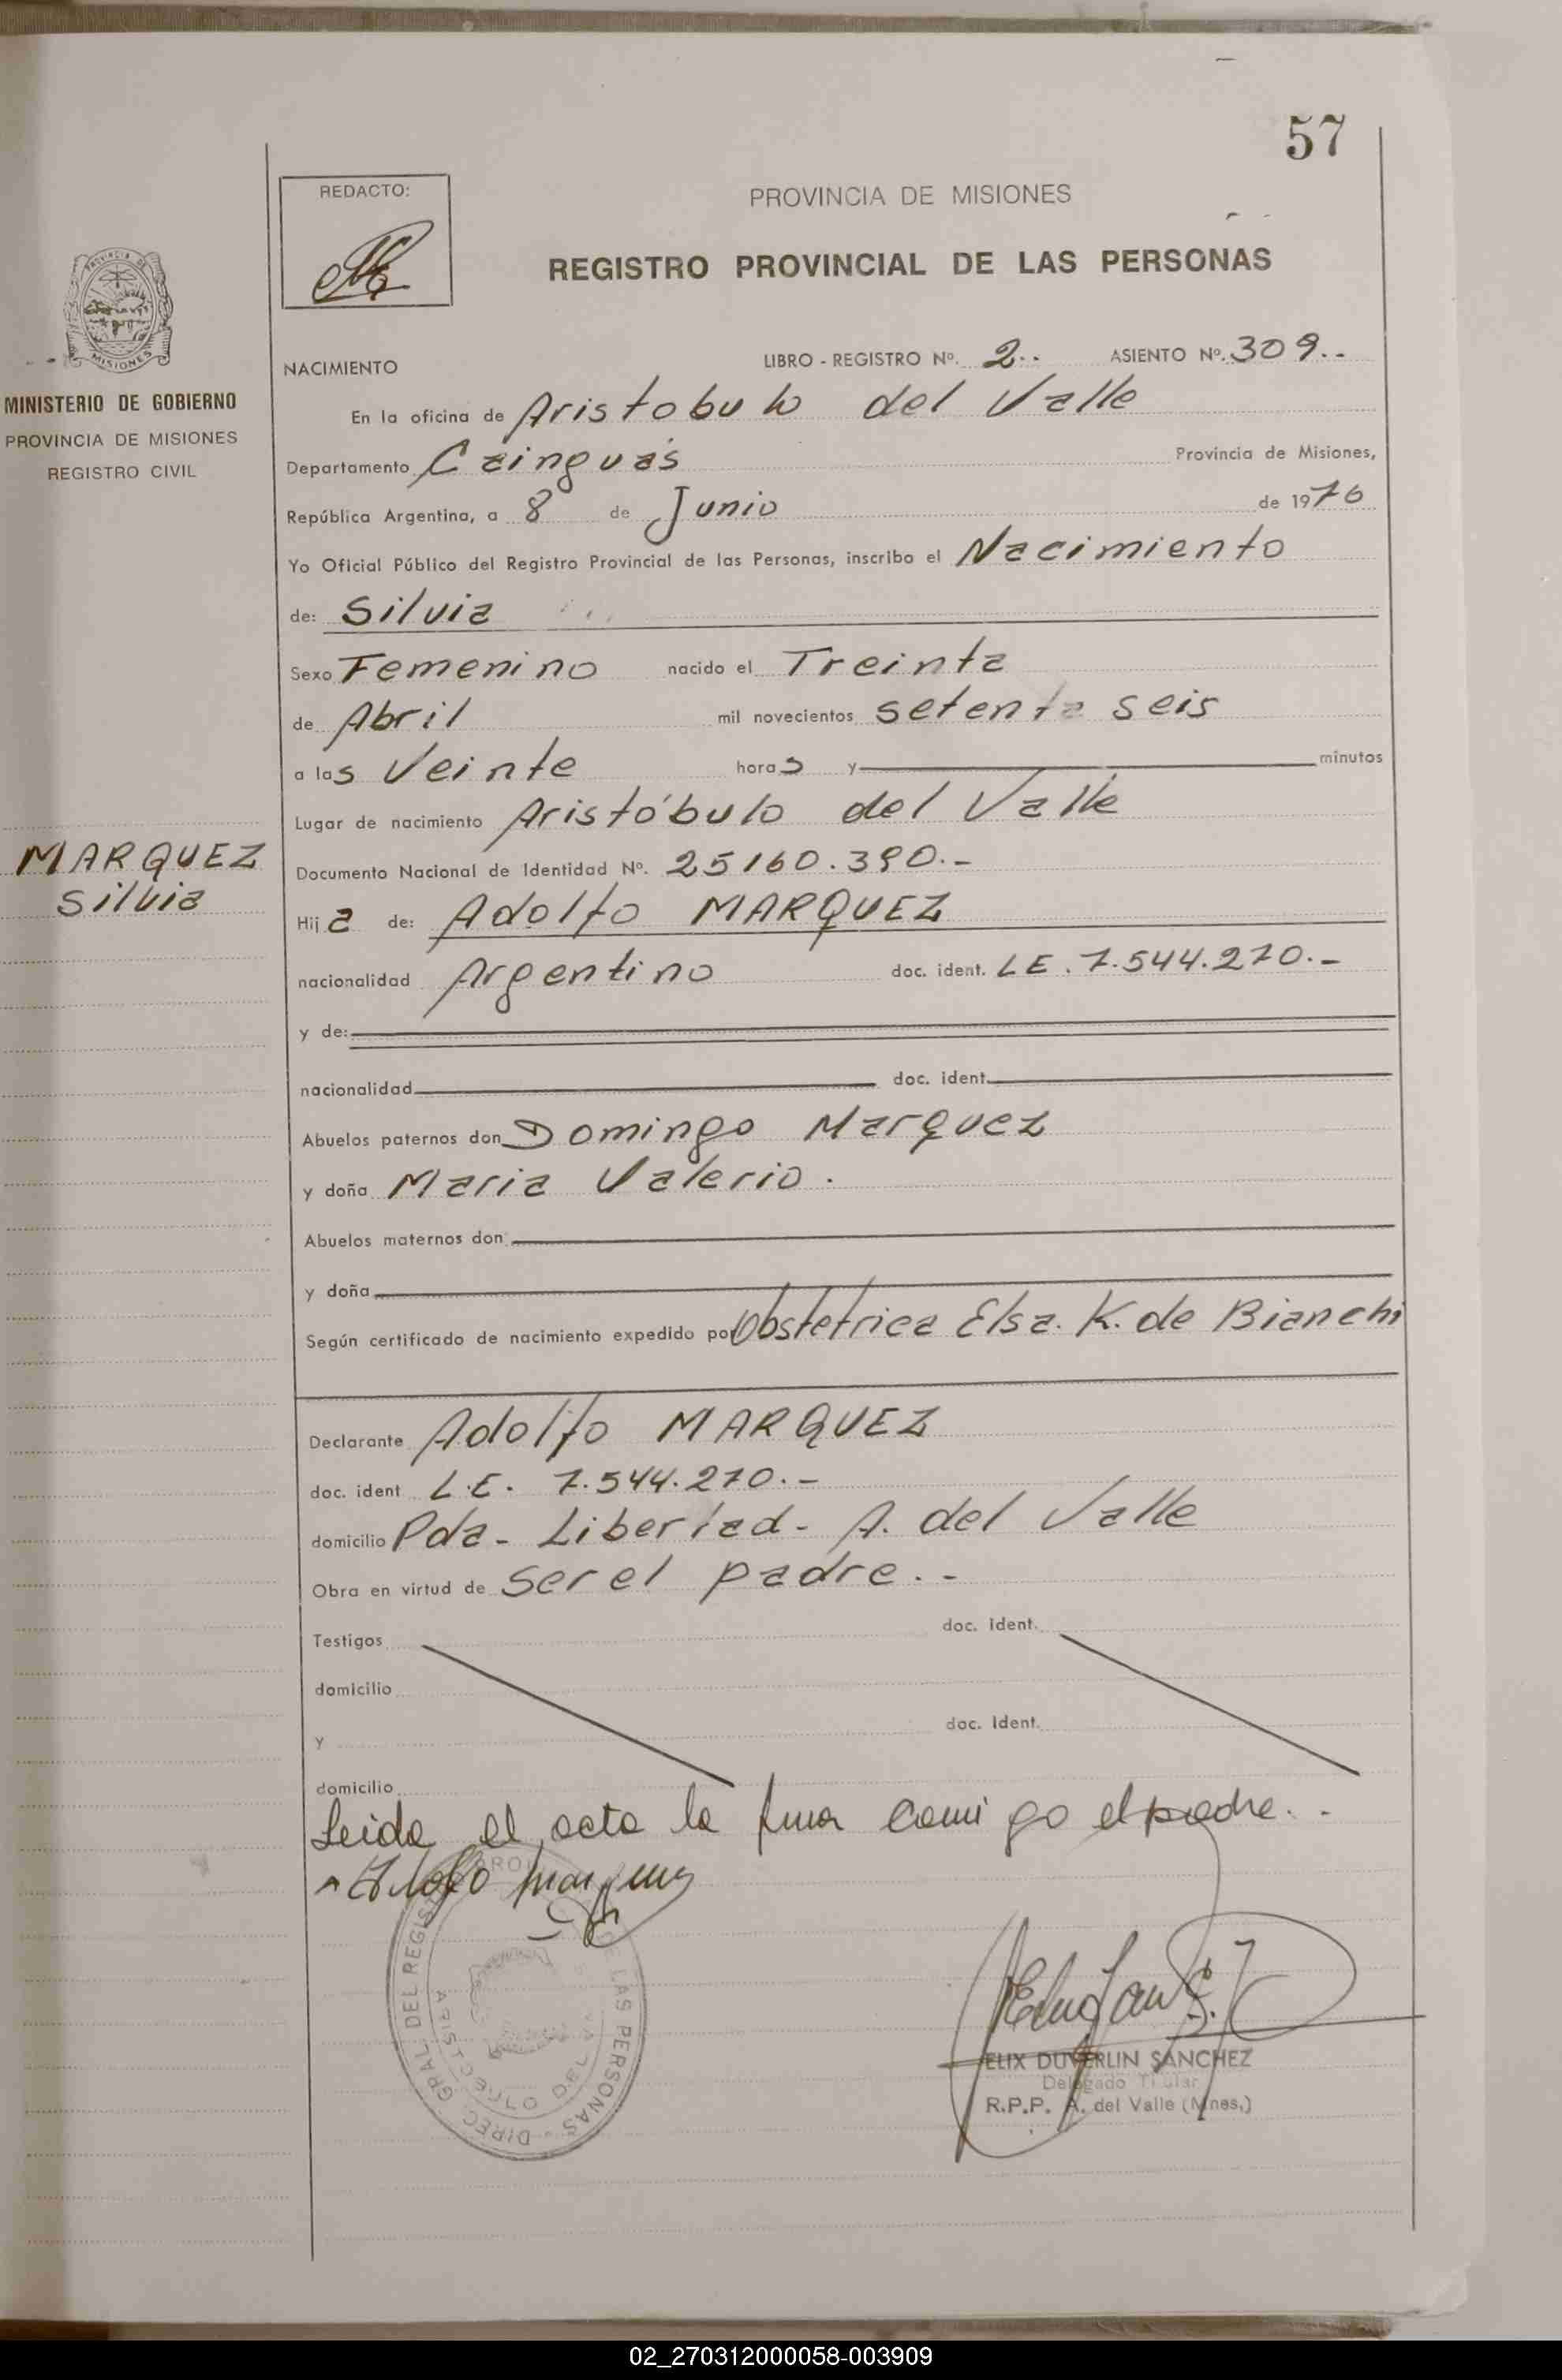 57
REDACTO:
PROVINCIA DE MISIONES
REGISTRO PROVINCIAL DE LAS PERSONAS
PROVINCIA DE
MISIONES
MINISTERIO DE GOBIERNO
PROVINCIA DE MISIONES
REGISTRO CIVIL
NACIMIENTO LIBRO - REGISTRO Nº. 2.. ASIENTO Nº. 309.-
En la oficina de Aristobulo del Valle
Departamento Cainguás Provincia de Misiones,
República Argentina, a 8 de Junio de 1976
Yo Oficial Público del Registro Provincial de las Personas, inscribo el Nacimiento
de: Silvia
Sexo Femenino nacido el Treinta
de Abril mil novecientos setenta seis
a las Veinte horas y minutos
Lugar de nacimiento Aristóbulo del Valle
MARQUEZ
Silvia
Documento Nacional de Identidad Nº. 25160.390.-
Hija de: Adolfo MARQUEZ
nacionalidad Argentino doc. ident. LE. 7.544.270.-
y de:
nacionalidad doc. ident.
Abuelos paternos don Domingo Marquez
y doña Maria Valerio.
Abuelos maternos don:
y doña
Según certificado de nacimiento expedido por Obstetrica Elsa. K. de Bianchi
Declarante Adolfo MARQUEZ
doc. ident L.E. 7.544.270.-
domicilio Pda- Libertad- A. del Valle
Obra en virtud de ser el padre.-
Testigos doc. ident.
domicilio
y doc. ident.
domicilio
Leida el acta la firma conmigo el padre.-
Adolfo marquez
DIREC. GRAL DEL REGIST PROV LAS PERSONAS
ARISTOBULO DEL VALLE
ELIX DUVERLIN SANCHEZ
Delegado Titular
R.P.P. A. del Valle (Mnes.)
02_270312000058-003909